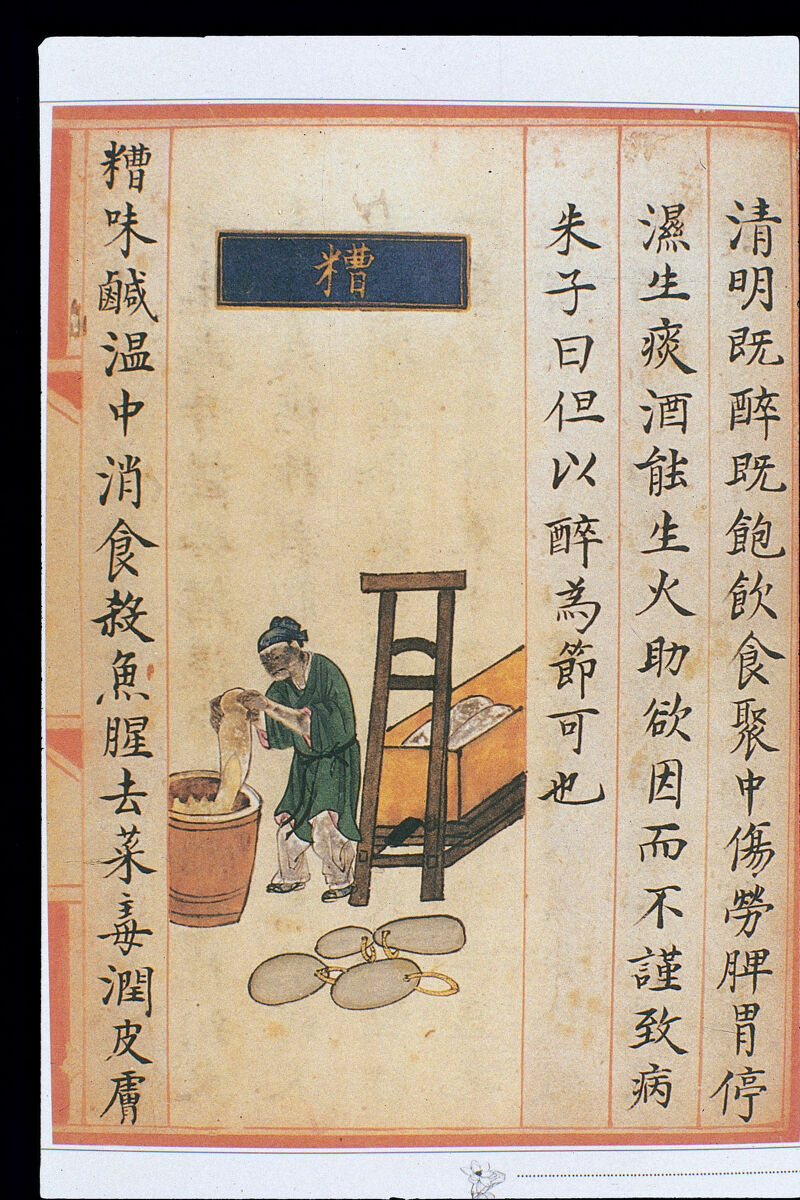 清明既醉既飽飲食聚中傷勞脾胃停
濕生痰酒能生火助欲因而不謹致病
朱子曰但以醉為節可也
糟
糟味鹹溫中消食殺魚腥去菜毒潤皮膚